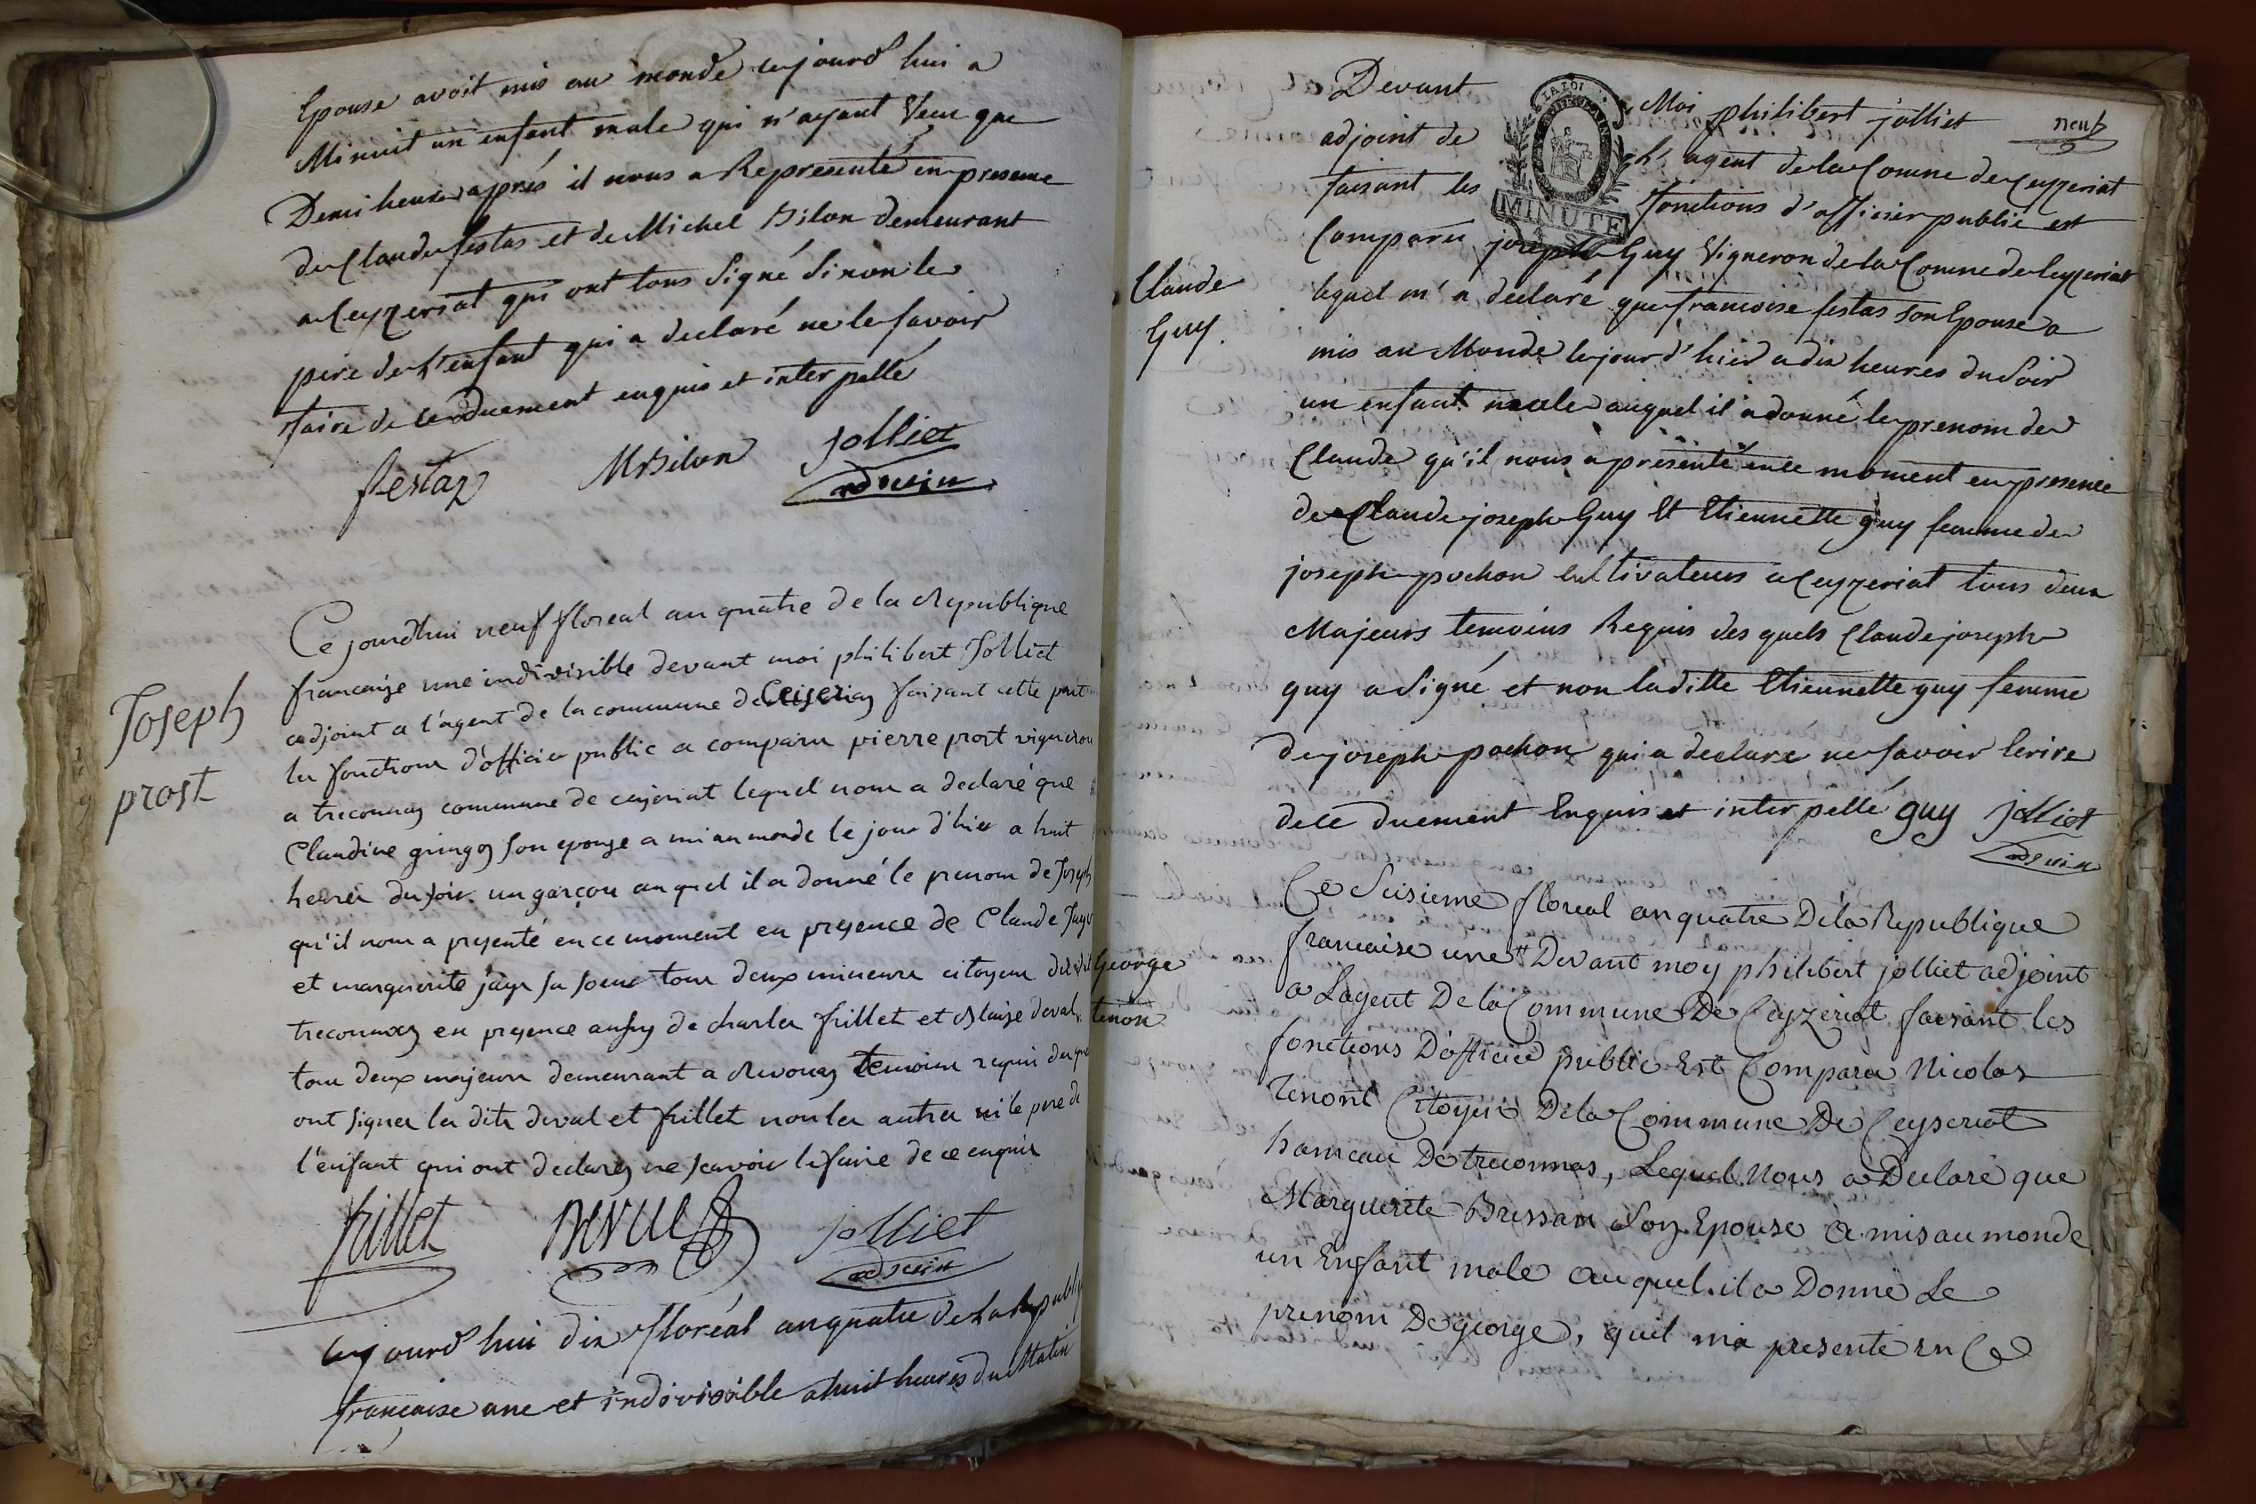 Epouse avoit mis au monde cejourd'hui a
Minuit un enfant male qui n'ayant Vecu que
Demi heure aprés il nous a Representé en presence
de Claude festas et de Michel Bilon demeurant
a Ceyzeriat qui ont tous Signé Sinon le
pere de l'enfant qui a declaré ne le savoir
faire de ce duement enquis et interpellé
festaz MBilon Jolliet
adjoint
Joseph
prost
Ce jourdhui neuf floreal an quatre de la Republique
francaise une indivisible devant moi philibert Jolliet
adjoint a l'agent de la commune de faisant cette part
les fonctions d'officier public a comparu pierre prost vigneron
a treconnas commune de ceyzeriat lequel nous a declaré que
Claudine gringoz son epouse a mi au monde le jour d'hier a huit
heures du soir un garçon auquel il a donné le prenom de Joseph
qu'il nous a presenté en ce moment en presence de Claude
et marguerite sa soeur tous deux mineurs citoyens
treconnas en presence aussy de charles frillet et Blaise deval
tous deux majeurs demeurant a Revonas temoins requis
ont signer les dits deval et frillet non les autres ni le pere de
l'enfant qui ont declarez ne scavoir le faire de ce enquis
frillet Jolliet
adjoint
cejourd'hui dix floréal an quatre de la Republi
française une et indivisible a huit heures du Matin
neuf
LA LOI
MINUTE
Devant Moi philibert jolliet
adjoint de L' agent de la Comne de Ceyzeriat
faisant les fonctions d'officier public est
Comparu joseph Guy Vigneron de la Comne de Ceyzeriat
Claude
Guy.
lequel m'a declaré que francoise festas son Epouse a
mis au Monde le jour d'hier a dix heures du Soir
un enfant male auquel il a donné le prenom de
Claude qu'il nous a presenté en ce moment en presence
de Claude joseph Guy Et Etiennette guy femme de
joseph pochon Cultivateurs a Ceyzeriat tous deux
Majeurs temoins Requis des quels Claude joseph
guy a Signé et non laditte Etiennette guy femme
de joseph pochon qui a declare ne savoir Ecrire
de ce duement Enquis et interpellé guy Jolliet
adjoint
George
tenon
Ce Seisieme floreal an quatre De la Republique
francaise une Devant moy philibert jolliet adjoint
a Lagent De la Commune De Ceyzeriat faisant les
fonctions D'officier public Est Compara Nicolas
Tenont Citoyen De la Commune De Ceyseriat
hameau De treconnas, Lequel Nous a Declaré que
Marguerite Bressan Son Epouse a mis au monde
un Enfant male auquel il a Donné Le
prenom De george, quil ma presente En Ce